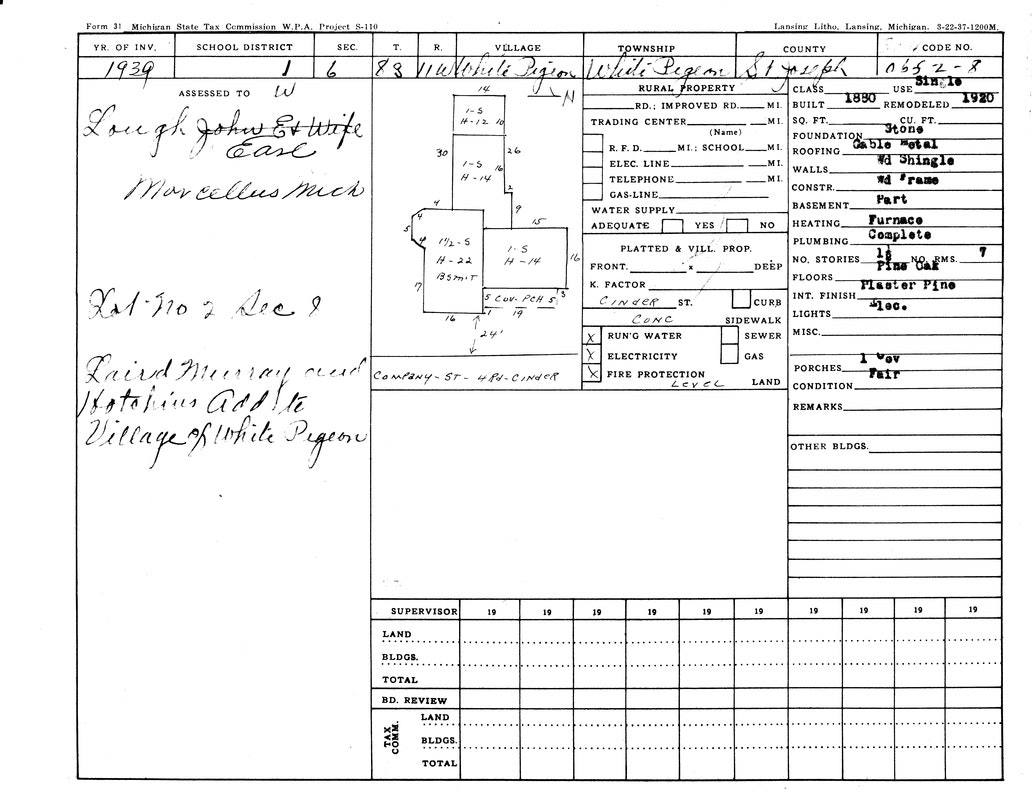 Form 31 Michigan State Tax Commission W.P.A. Project S-110
Lansing Litho, Lansing, Michigan. 3-22-37-1200M.
YR. OF INV. SCHOOL DISTRICT SEC. T. R. VILLAGE TOWNSHIP COUNTY CODE NO.
1939 1 6 8S 11W White Pigeon White Pigeon St Joseph 065 2-8
ASSESSED TO W
Lough John E+ Wife
Earl
Marcellus Mich
Lot No 2 Sec 8
Laird Murray and
Hotchins Add to
Village of White Pigeon
14
N
1-S
H-12 10
30
26
1-S 16
H-14
2
4
9
15
4
5
4
1½-S
H-22
BSmiT
1-S
H-14
16
17
5 COV-PCH 5 3
1 19
16
24'
COMPANY-ST-4Rd-CINDER
RURAL PROPERTY
RD.; IMPROVED RD. MI.
TRADING CENTER MI.
(Name)
R. F. D. MI.; SCHOOL MI.
ELEC. LINE MI.
TELEPHONE MI.
GAS-LINE
WATER SUPPLY
ADEQUATE YES NO
PLATTED & VILL. PROP.
FRONT. x DEEP
K. FACTOR
CINDER ST. CURB
CONC SIDEWALK
X RUN'G WATER SEWER
X ELECTRICITY GAS
X FIRE PROTECTION
LEVEL LAND
CLASS USE Single
BUILT 1880 REMODELED 1920
SQ. FT. CU. FT.
FOUNDATION Stone
ROOFING Gable Metal
WALLS Wd Shingle
CONSTR. Wd Frame
BASEMENT Part
HEATING Furnace
PLUMBING Complete
NO. STORIES 1½ NO. RMS. 7
FLOORS Pine Oak
INT. FINISH Plaster Pine
LIGHTS Elec.
MISC.
PORCHES 1 Cov
CONDITION Fair
REMARKS
OTHER BLDGS.
SUPERVISOR 19 19 19 19 19 19 19 19 19 19
LAND
BLDGS.
TOTAL
BD. REVIEW
TAX COMM.
LAND
BLDGS.
TOTAL